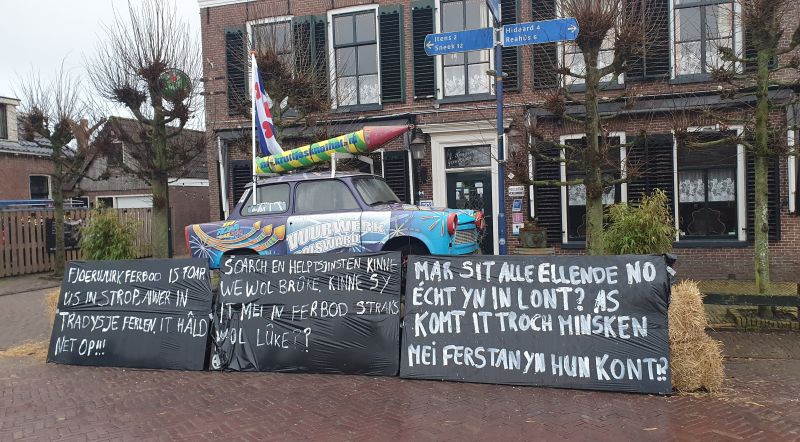 Itens 2
Sneek 12
Hidaard 4
Reahûs 6
VUURWERK
OLSWARD
FJOERWURK FERBOD IS FOAR
US IN STROP, AWER IN
TRADYSJE FERLEN, IT HÂLD
NET OP!!!
SOARCH EN HELPTSJINSTEN KINNE
WE WOL BRÛKE, KINNE SY
IT MEI IN FERBOD STRAKS
WOL LÛKE??
MAR SIT ALLE ELLENDE NO
ÉCHT YN IN LONT? AS
KOMT IT TROCH MINSKEN
MEI FERSTAN YN HUN KONT!?